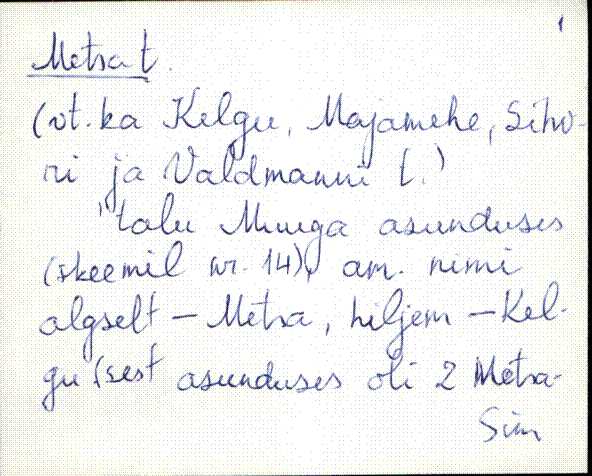 1
Metsa t.
(vt. ka Kelgu, Majamehe, Siho-
ri ja Valdmanni t.)
"talu Muuga asunduses
(skeemil nr. 14), am. nimi
algselt – Metsa, hiljem – Kel-
gu (sest asunduses oli 2 Metsa-
Sim